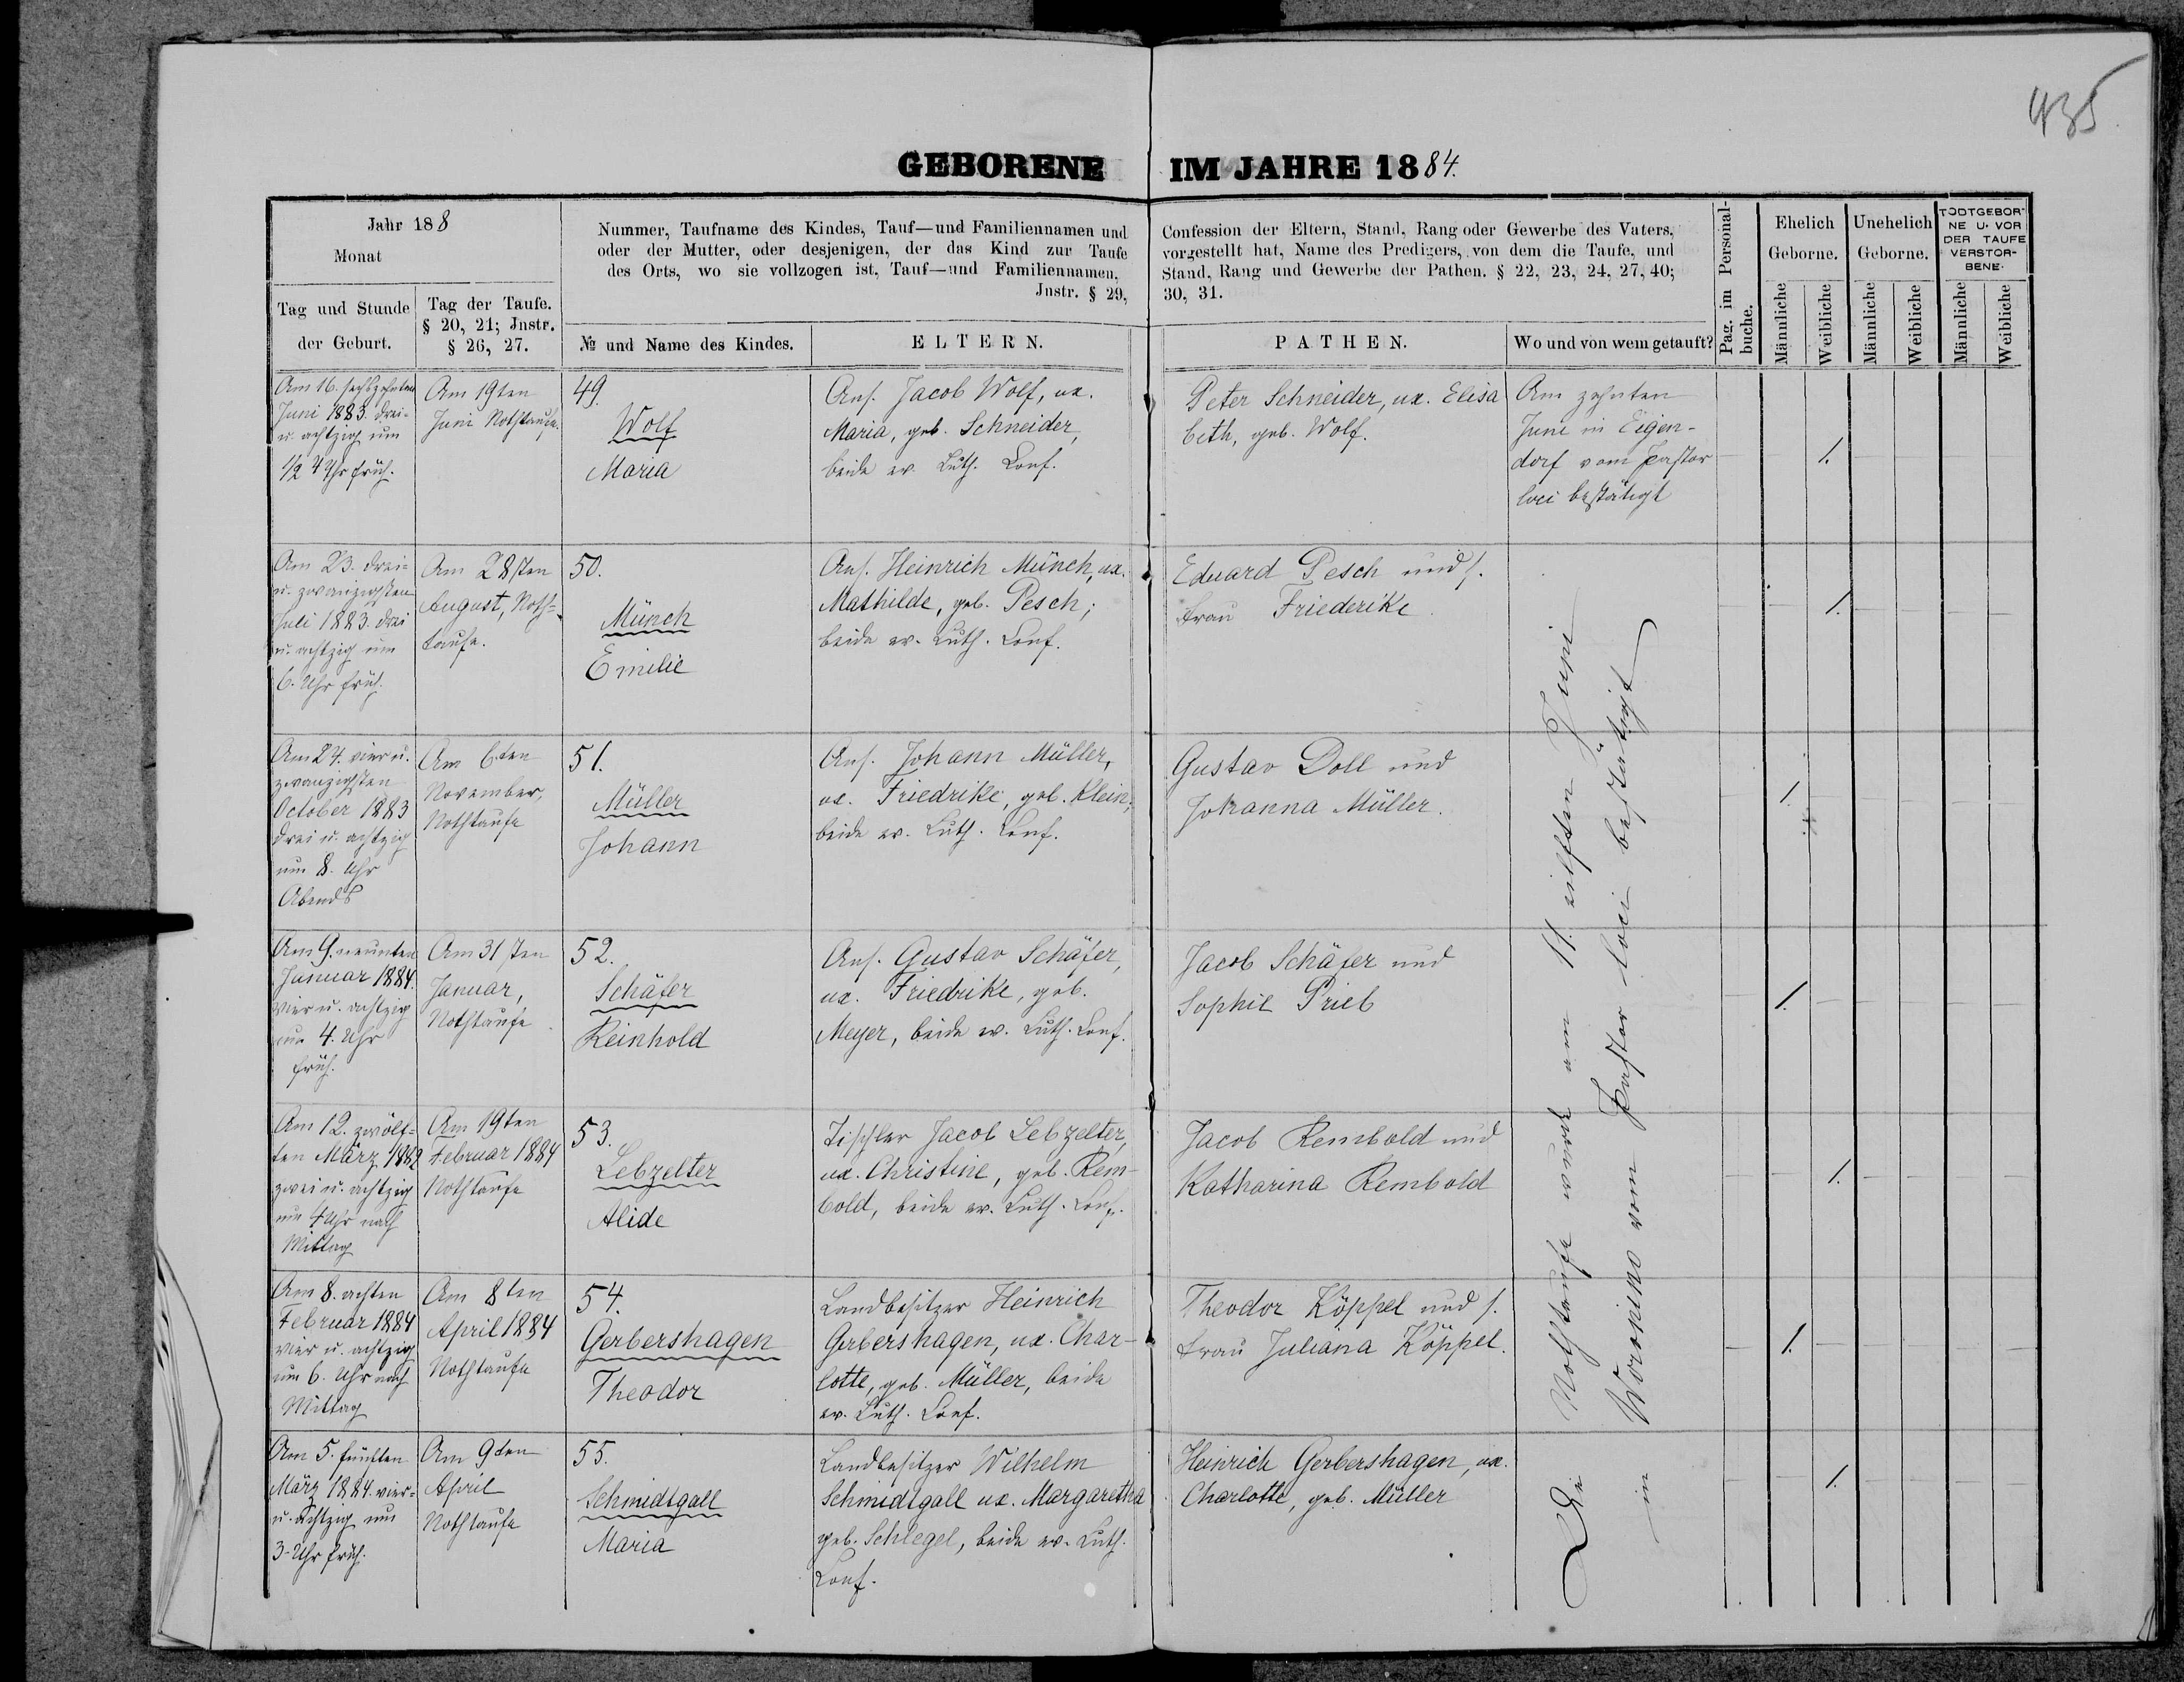 435
GEBORENE IM JAHRE 1884.
Jahr 188
Monat
Tag und Stunde
der Geburt.
Tag der Taufe.
§ 20, 21; Jnstr.
§ 26, 27.
Nummer, Taufname des Kindes, Tauf—und Familiennamen und
oder der Mutter, oder desjenigen, der das Kind zur Taufe
des Orts, wo sie vollzogen ist, Tauf—und Familiennamen,
Jnstr. § 29,
№ und Name des Kindes.
ELTERN.
Confession der Eltern, Stand, Rang oder Gewerbe des Vaters,
vorgestellt hat, Name des Predigers, von dem die Taufe, und
Stand, Rang und Gewerbe der Pathen. § 22, 23, 24, 27, 40;
30, 31.
PATHEN.
Wo und von wem getauft?
Pag. im Personal-
buche.
Ehelich
Geborne.
Unehelich
Geborne.
TODTGEBOR-
NE U. VOR
DER TAUFE
VERSTOR-
BENE.
Männliche
Weibliche
Männliche
Weibliche
Männliche
Weibliche
Am 16. sechszehnten
Juni 1883. drei-
u. achtzig um
1/2 4 Uhr früh.
Am 19ten
Juni Nothtaufe.
49.
Wolf
Maria
Ans. Jacob Wolf, ux.
Maria, geb. Schneider,
beide ev. Luth. Conf.
Peter Schneider, ux. Elisa
beth, geb. Wolf.
Am zehnten
June in Eigen-
dorf vom Pastor
loci bestätigt
1.
Am 23. drei-
u. zwanzigsten
Juli 1883. drei
u. achtzig um
6. Uhr früh.
Am 28sten
August, Noth-
taufe.
50.
Münch
Emilie
Ans. Heinrich Münch, ux.
Mathilde, geb. Pesch;
beide ev. Luth. Conf.
Eduard Pesch und s.
Frau Friederike.
1.
Am 24. vier u.
zwanzigsten
October 1883
drei u. achtzig
um 8. Uhr
Abends
Am 6ten
November,
Nothtaufe
51.
Müller
Johann
Ans. Johann Müller,
ux. Friedrike, geb. Klein;
beide ev. Luth. Conf.
Gustav Doll und
Johanna Müller.
1.
Am 9. neunten
Januar 1884.
vier u. achtzig
um 4. Uhr
früh.
Am 31sten
Januar,
Nothtaufe
52.
Schäfer
Reinhold
Ans. Gustav Schäfer,
ux. Friedrike, geb.
Meyer, beide ev. Luth. Conf.
Jacob Schäfer und
Sophie Prieb
1.
Am 12. zwölf-
ten März 1882
zwei u. achtzig
um 4 Uhr nach
Mittag
Am 19ten
Februar 1884
Nothtaufe
53.
Lebzelter
Alide
Tischler Jacob Lebzelter,
ux. Christine, geb. Rem-
bold, beide ev. Luth. Conf.
Jacob Rembold und
Katharina Rembold
1.
Am 8. achten
Februar 1884
vier u. achtzig
um 6. Uhr nach
Mittag
Am 8ten
April 1884
Nothtaufe
54.
Gerbershagen
Theodor
Landbesitzer Heinrich
Gerbershagen, ux. Char-
lotte, geb. Müller, beide
ev. Luth. Conf.
Theodor Köppel und s.
Frau Juliana Köppel.
1.
Am 5. fünften
März 1884. vier-
u. achtzig um
3-Uhr früh.
Am 9ten
April
Nothtaufe
55.
Schmidtgall
Maria
Landbesitzer Wilhelm
Schmidtgall ux. Margaretha
geb. Schlegel, beide ev. Luth.
Conf.
Heinrich Gerbershagen, ux.
Charlotte, geb. Müller
1.
Die Nothtaufe wurde am 11. eilften Juni
in Woronino vom Pastor loci bestätigt